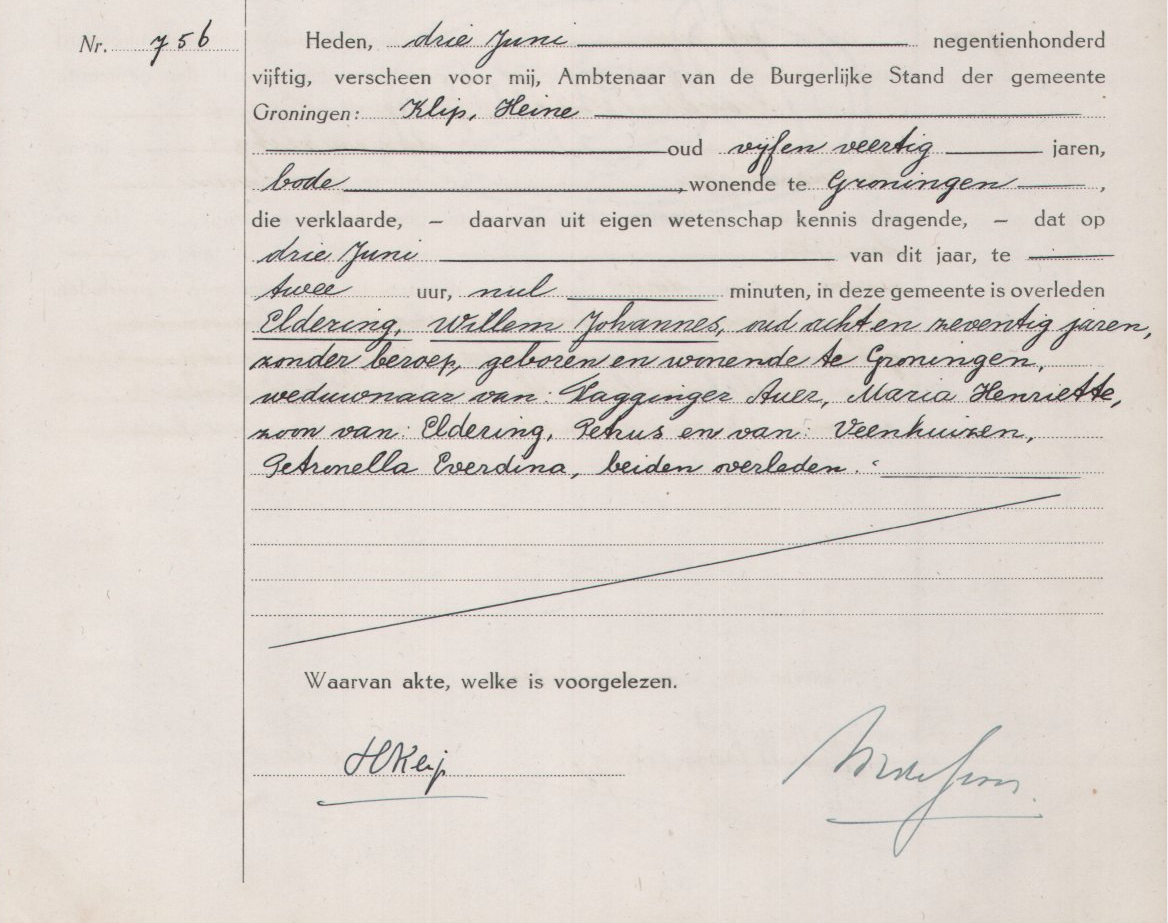 Nr. 756
Heden, drie Juni negentienhonderd
vijftig, verscheen voor mij, Ambtenaar van de Burgerlijke Stand der gemeente
Groningen: Klip, Heine
oud vijfen veertig jaren,
bode, wonende te Groningen,
die verklaarde, — daarvan uit eigen wetenschap kennis dragende, — dat op
drie Juni van dit jaar, te
twee uur, nul minuten, in deze gemeente is overleden
Eldering, Willem Johannes, oud acht en zeventig jaren,
zonder beroep, geboren en wonende te Groningen,
weduwnaar van: Vagginger Auer, Maria Henriette,
zoon van: Eldering, Petrus en van: Veenhuizen,
Petronella Everdina, beiden overleden.
Waarvan akte, welke is voorgelezen.
HKlip